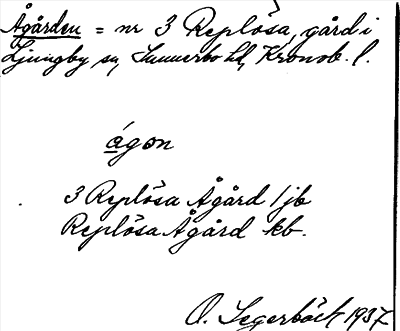 Ågården = nr 3 Replösa, gård i
Ljungby sn, Sunnerbo hd, Kronob. l.
ágon
3 Replösa Ågård 1 jb
Replösa Ågård kb.
O. Segerbäck 1937